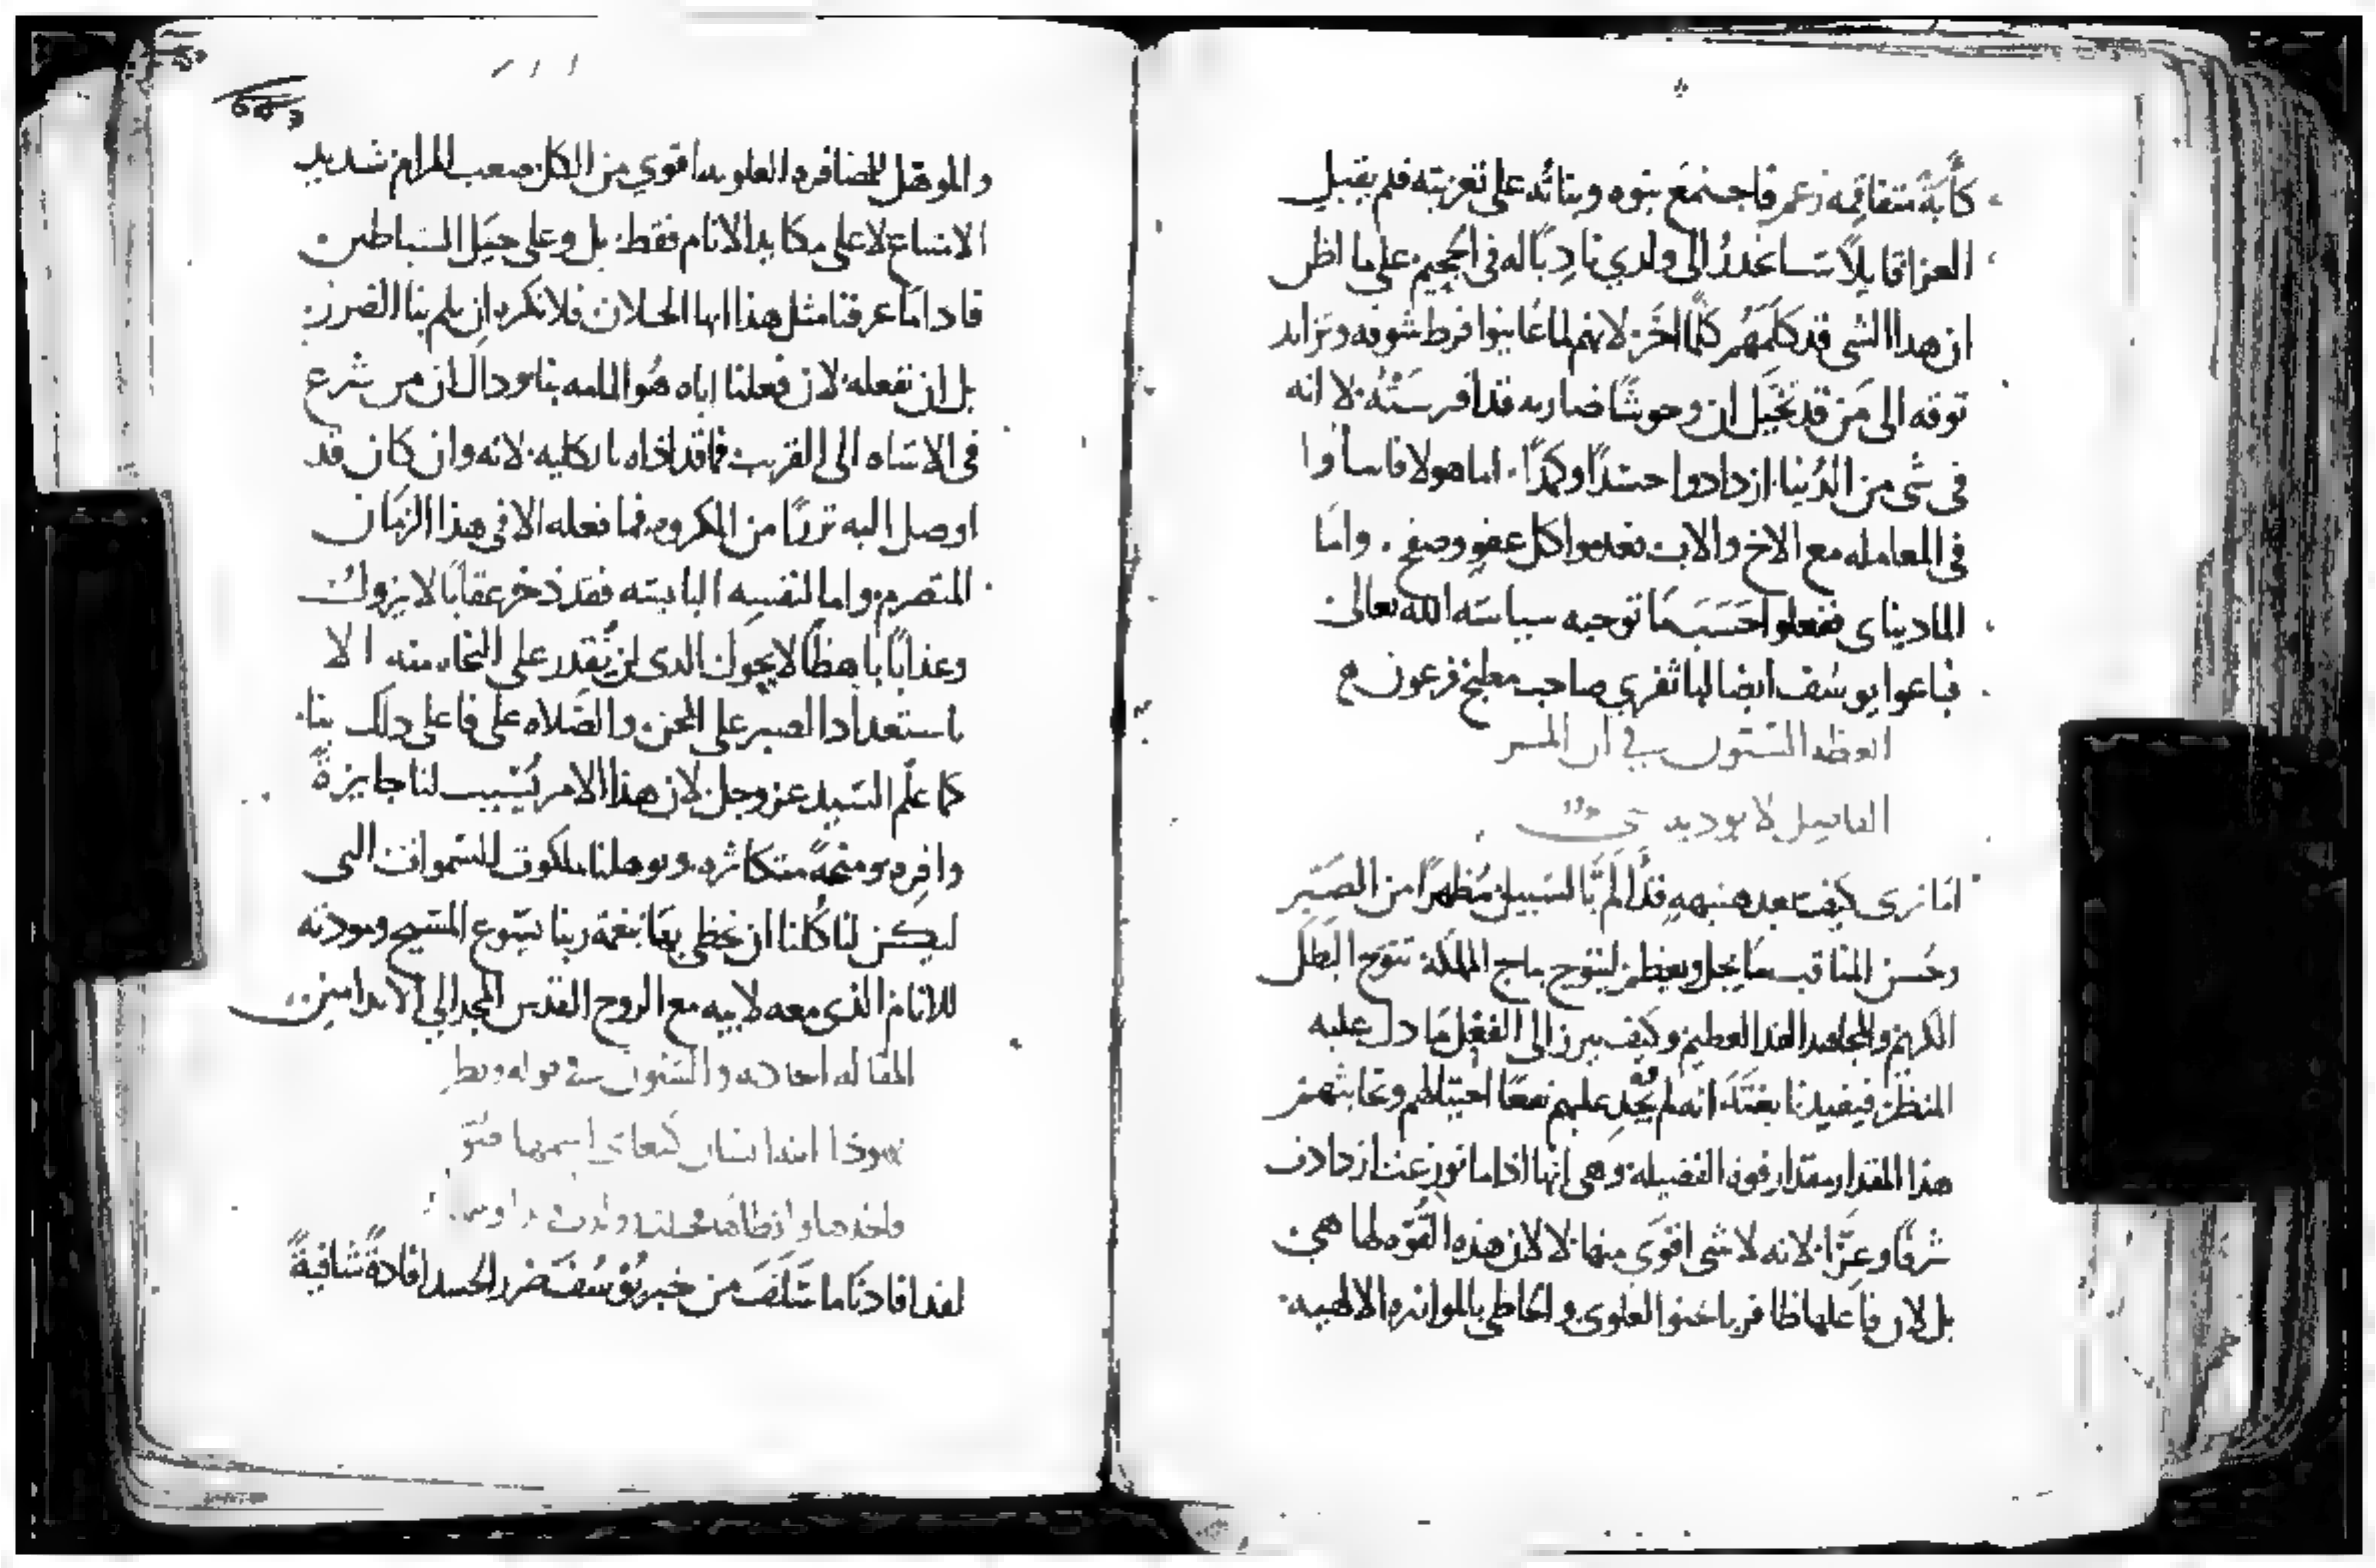 كآبةً متفاقمه زعم فاجتمع بنوه وبناته على تعزيته فلم يقبل
العزا قايلاً سَاغدرُ الى ولدي نادِبًا له في الجحيم على ما اظن
ان هدا الشى قد كلمَهُم كلمًا اخَر لانهم لما عاينوا فرط شوقه وتزايد
توقه الى مَن قد تخَيل ان وحوشًا ضاريه قد افرسَتْهُ لا انه
في شى من الدُنيا ازدادوا حسَدًا وكمدًا اما هولا فاساوا
في المعامله مع الاخ والاب بعدموا كل عفوٍ وصفحٍ واما
المادينيا ى ففعلوا حَسَبَ مَا توجبه سياسَه الله تعالى
فباعوا يوسُف ايضا لباثفري صاحب مطبخ فرعون
العظه السَتون في ان المسر
الفاضل لا يوديه شى
امَا ترى كيف بعد هنيهه قد المَّ بالسَبيل مُظهرًا من الصَبر
وحُسن المناقب مَا يجل ويعظم ليتوج بتاج المملكة تتوج البَطل
الكريم والمجاهد الفد العظيم وكيف يبرز الى الفعْل مَا دل عليه
المنظر فيفيدنا بغتةً انه لم يُجْدِ عليهم نفعًا احتيالهم وعَا
هذا المقدار مقدار قوه الفضيله وهى انها اذا ما نوزعت ازدادت
شرفًا وعِزًّا لانه لا شى اقوَى منها لا لان هذه القوه لها هى
بل لان فاعلها ظافر باحنو العلوي والحاظى بالموازره الالهيه
والموصل المضافره العلويه اقوي من الكل صعب المرام شديد
الاتساع لا على مكايد الانام فقط بل وعلى حيَل الشياطين
فاداما عرفنا مثل هذا ايها الخلان فلا نكره ان يلم بنا الضرر
بل ان نفعله لان فعلنا اياه هُو الملمه بنا وداك ان من شرع
في الاسَاه الى القريب فما قد اذاه بالكليه لانه وان كان قد
اوصل اليه نزرًا من المكروه فما فعله الا في هذا الزمَان
المتصرم واما لنفسه البايسَه فقد ذخر عقابًا لا يزول
وعذابًا باهظًا لا يحول الدى لن يُقدر على النجاه منه الا
باستعدادا الصبر على المحن والصَلاه على فاعلى دلك بنا
كما علَّم السَيد عز وجل لان هذا الامر يُسَبب لنا جايزةً
وافره ومنحةً متكاثره ويوصلنا ملكوت السَموات التى
ليكن لنا كُلنا ان نحظى بها بنعمة ربنا يَسوع المسَيح ومودته
للانام الذى معه لابيه مع الروح القدس المجد الى الابد امين
المقاله الحاديه والسَتون في قوله ونظر
يهوذا ابنة انسَان كنعانى اسمها شوَع
فاخذها وانطلق
لقد افادنَا ما سَلَفَ من خبر يُوسُفَ ضرر الحسد افادةً شافيةً